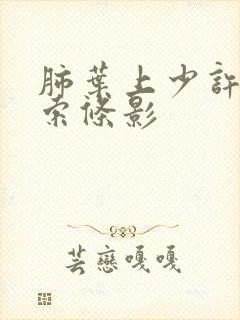 肺葉上少許
索條影
芸戀嘎嘎